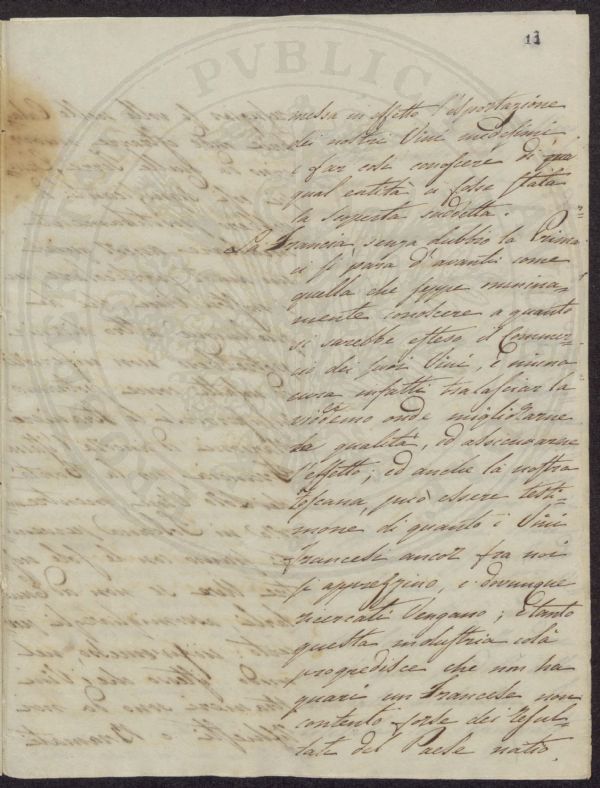 11
messa in effetto l'esportazione
dei nostri Vini medesimi
e far così conoscere di qua
qual entità ci fosse stata
la superstà suddetta.
La Francia senza dubbio la Prima
ci si para d'avanti come
quella che seppe minima
mente conoscere a quanto
si sarebbe esteso il Commer-
cio dei suoi Vini, e niuna
cura infatti tralasciar la
vidderno onde migliorarne
la qualità, ed
l'effetto; ed anche la nostra
Toscana, può essere testi-
mone di quanto i Vini
francesi ancor fra noi
si apprezzino, e dovunque
ricercati Vengano; E tanto
questa industria colà
progredisce che non ha
guari un Francese non
contento forse dei resul-
tati del Paese natio,